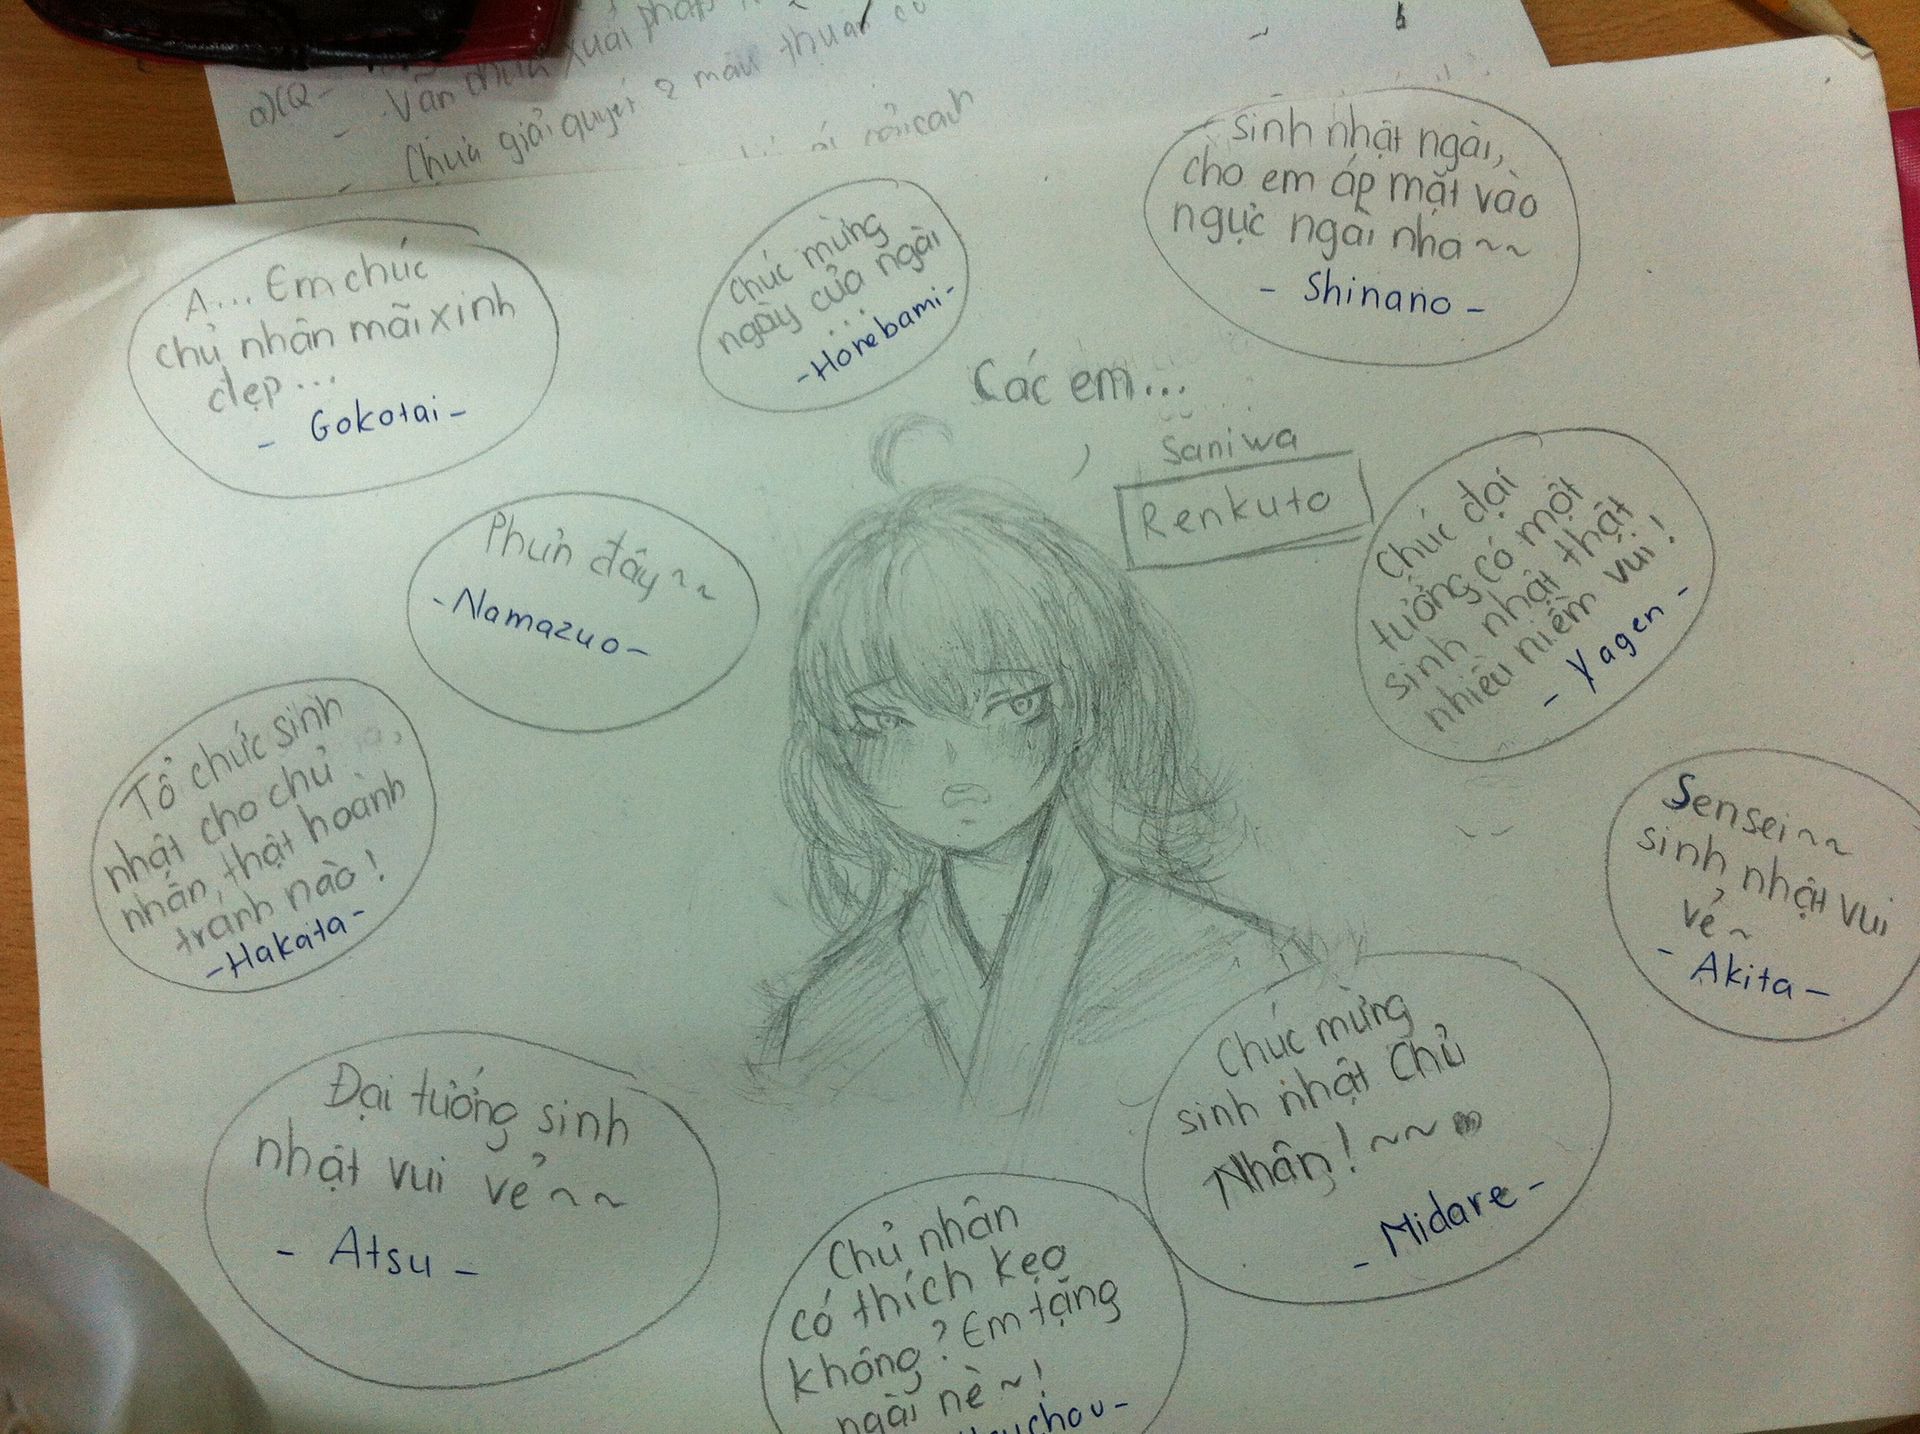 a)(Q-
- Vẫn chưa xuất phát
- Chưa giải quyết 2 mâu thuẫn cơ
A... Em chúc
chủ nhân mãi xinh
đẹp...
- Gokotai -
Chúc mừng
ngày của ngài
...
- Honebami -
Sinh nhật ngài,
cho em áp mặt vào
ngực ngài nha ~~
- Shinano -
Các em...
Saniwa
Renkuto
Phưn đây ~~
- Namazuo -
Chúc đại
tướng có một
sinh nhật thật
nhiều niềm vui!
- Yagen -
Tổ chức sinh
nhật cho chủ
nhân, thật hoành
tránh nào!
- Hakata -
Sensei ~~
sinh nhật vui
vẻ ~
- Akita -
Đại tướng sinh
nhật vui vẻ ~~
- Atsu -
Chúc mừng
sinh nhật Chủ
Nhân! ~~
- Midare -
Chủ nhân
có thích kẹo
không? Em tặng
ngài nè ~!